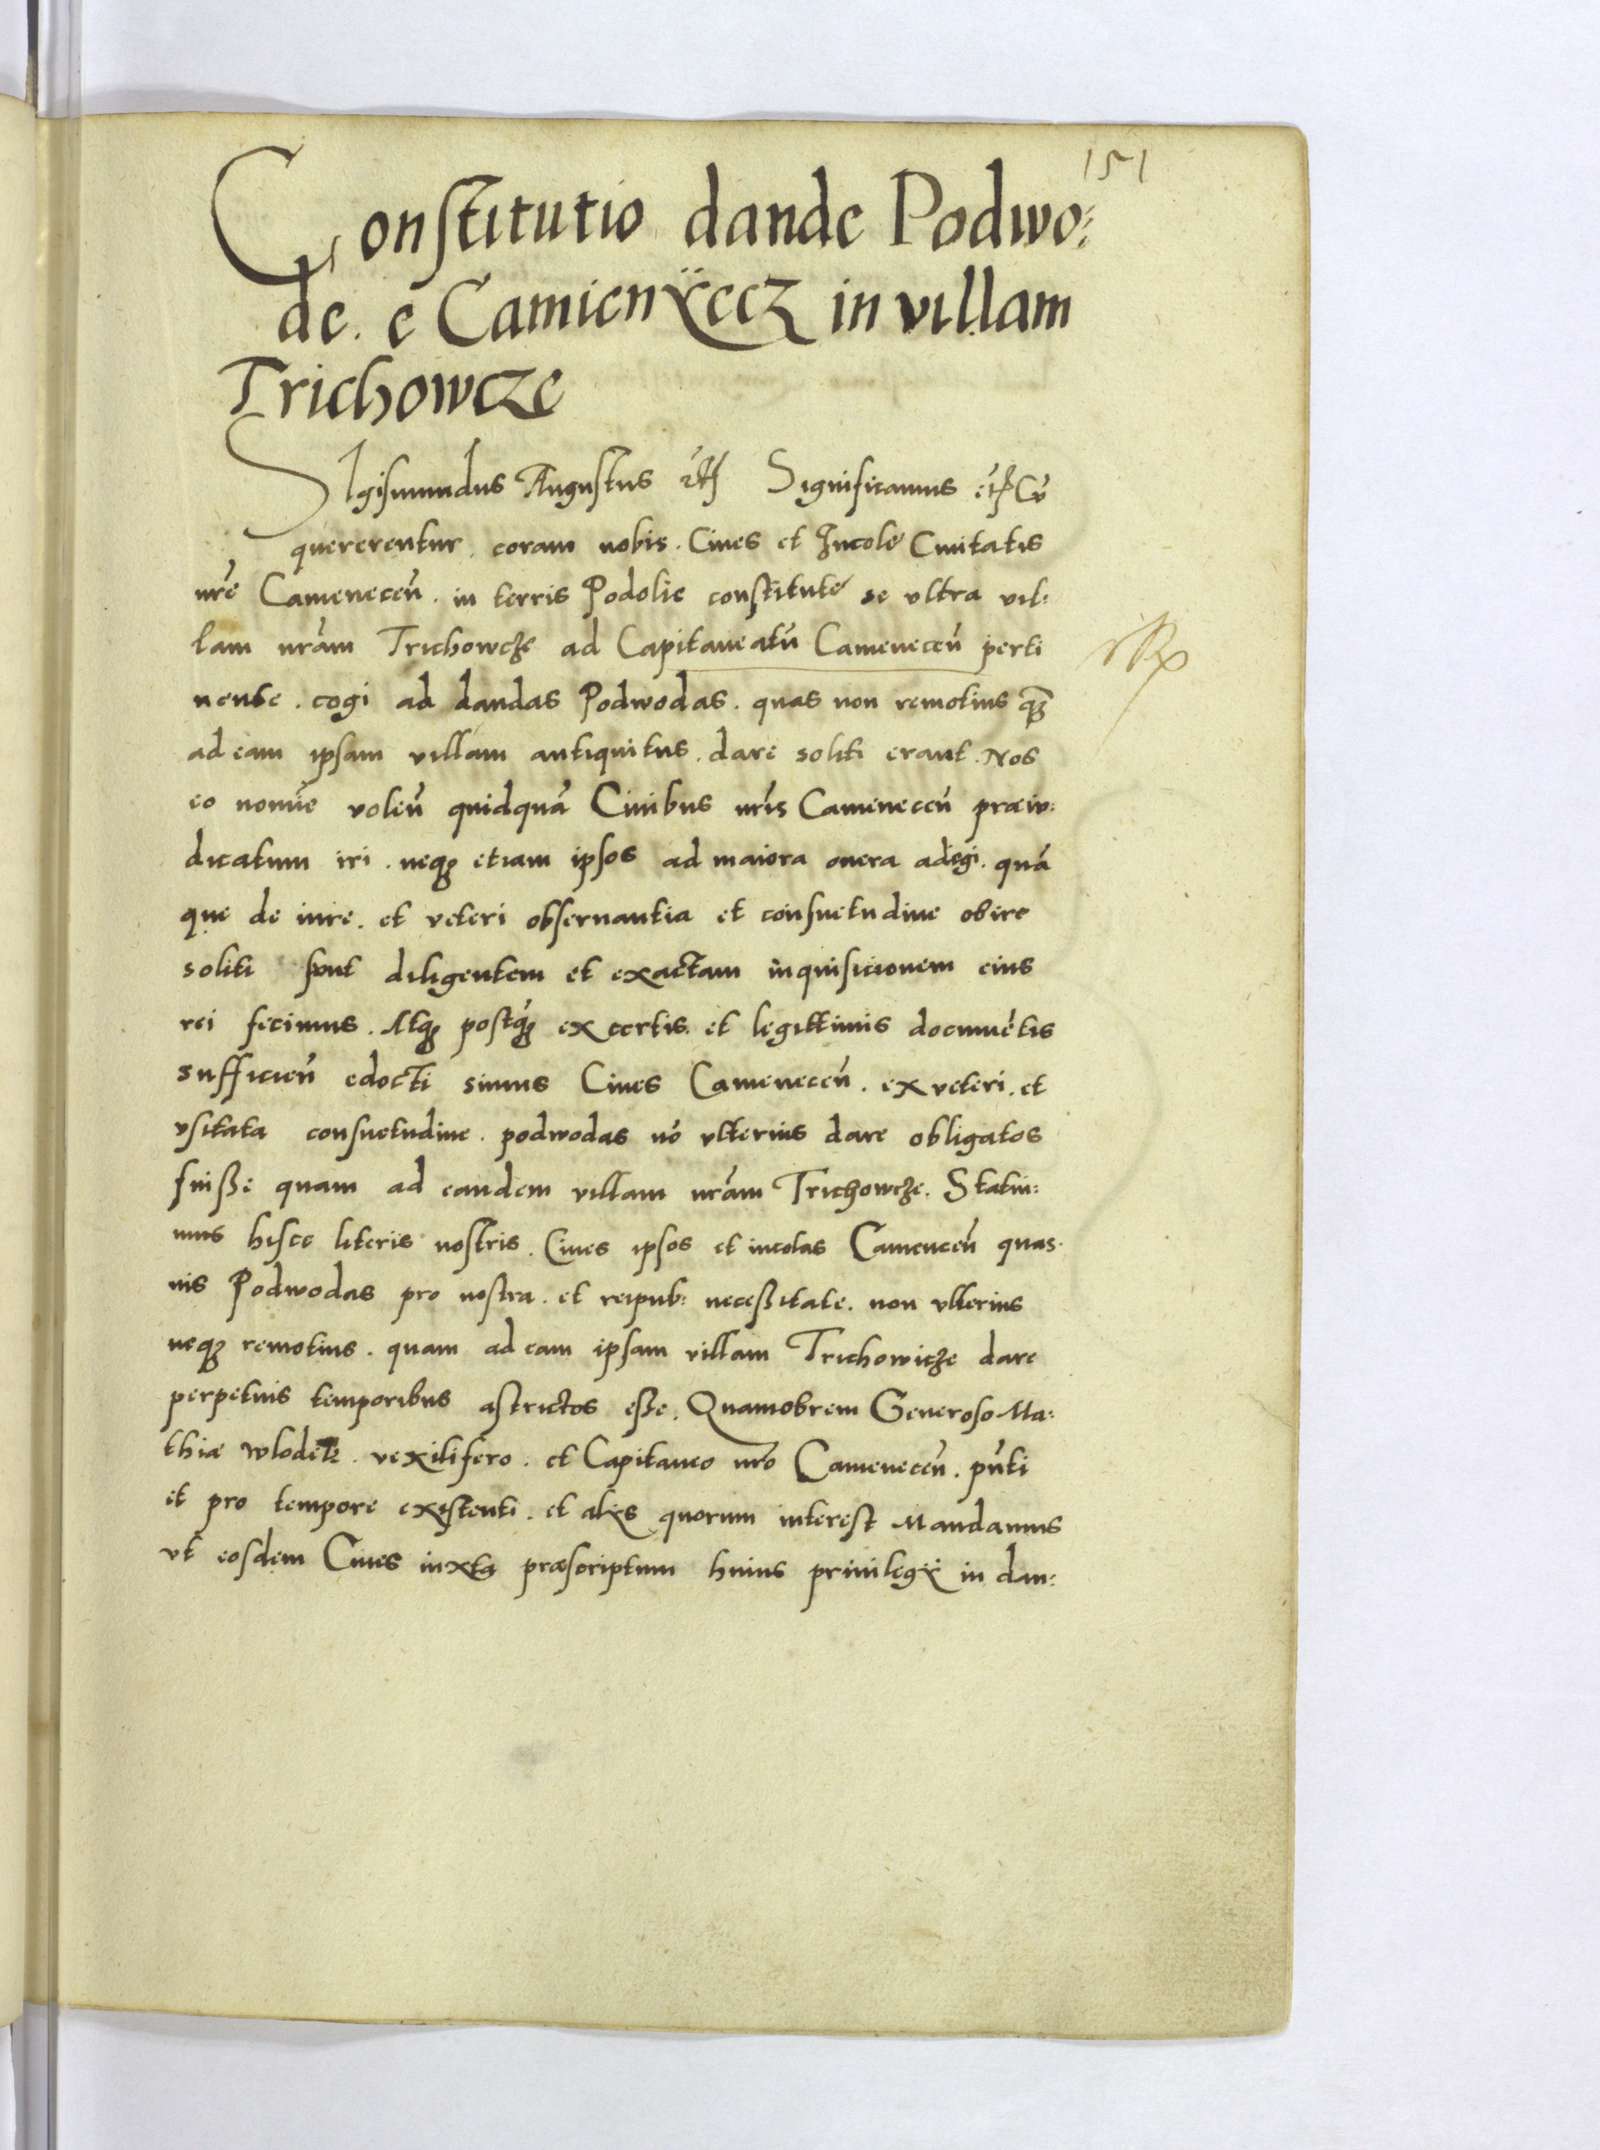 151
Constitutio dande Podwo:
de. e Camienÿecz in villam
Trichowcze
SIgismundus Augustus Significamus Cū
quererentur. coram nobis. Ciues et Incole Ciuitatis
nrẽ Camenecen̄. in terris Podolie constitute se vltra vil:
lam nrãm Trichowcze ad Capitaneatū Camenecen̄ perti
nente. cogi ad dandas Podwodas. quas non remotius q̃ꝫ
ad eam ipsam villam antiquitus. dare soliti erant. Nos
eo nomĩe volen̄ quidquā Ciuibus nrĩs Camenecen̄ præiu:
dicatum iri. neqꝫ etiam ipsos ad maiora onera adigi. quā
que de iure. et veteri obseruantia et consuetudine obire
soliti sunt diligentem et exactam inquisicionem eius
rei fecimus. Atqꝫ postq̃ꝫ ex certis. et legittimis documētis
sufficien̄ edocti simus Ciues Camenecen̄. ex veteri. et
vsitata consuetudine. podwodas nō vlterius dare obligatos
fuiße quam ad eandem villam nrãm Trichowcze. Statui:
mus hisce literis nostris. Ciues ipsos et incolas Camencen̄ quas
uis Podwodas pro nostra. et reipub: neceßitate. non vlterius
neqꝫ remotius. quam ad eam ipsam villam Trichowicze dare
perpetuis temporibus astrictos eße. Quamobrem Generoso Ma:
thiæ wlodek. vexilifero. et Capitaneo nrõ Camenecen̄. pn̄ti
et pro tempore existenti. et alÿs quorum interest Mandamus
vt eosdem Ciues iuxta præscriptum huius priuilegÿ in dan: